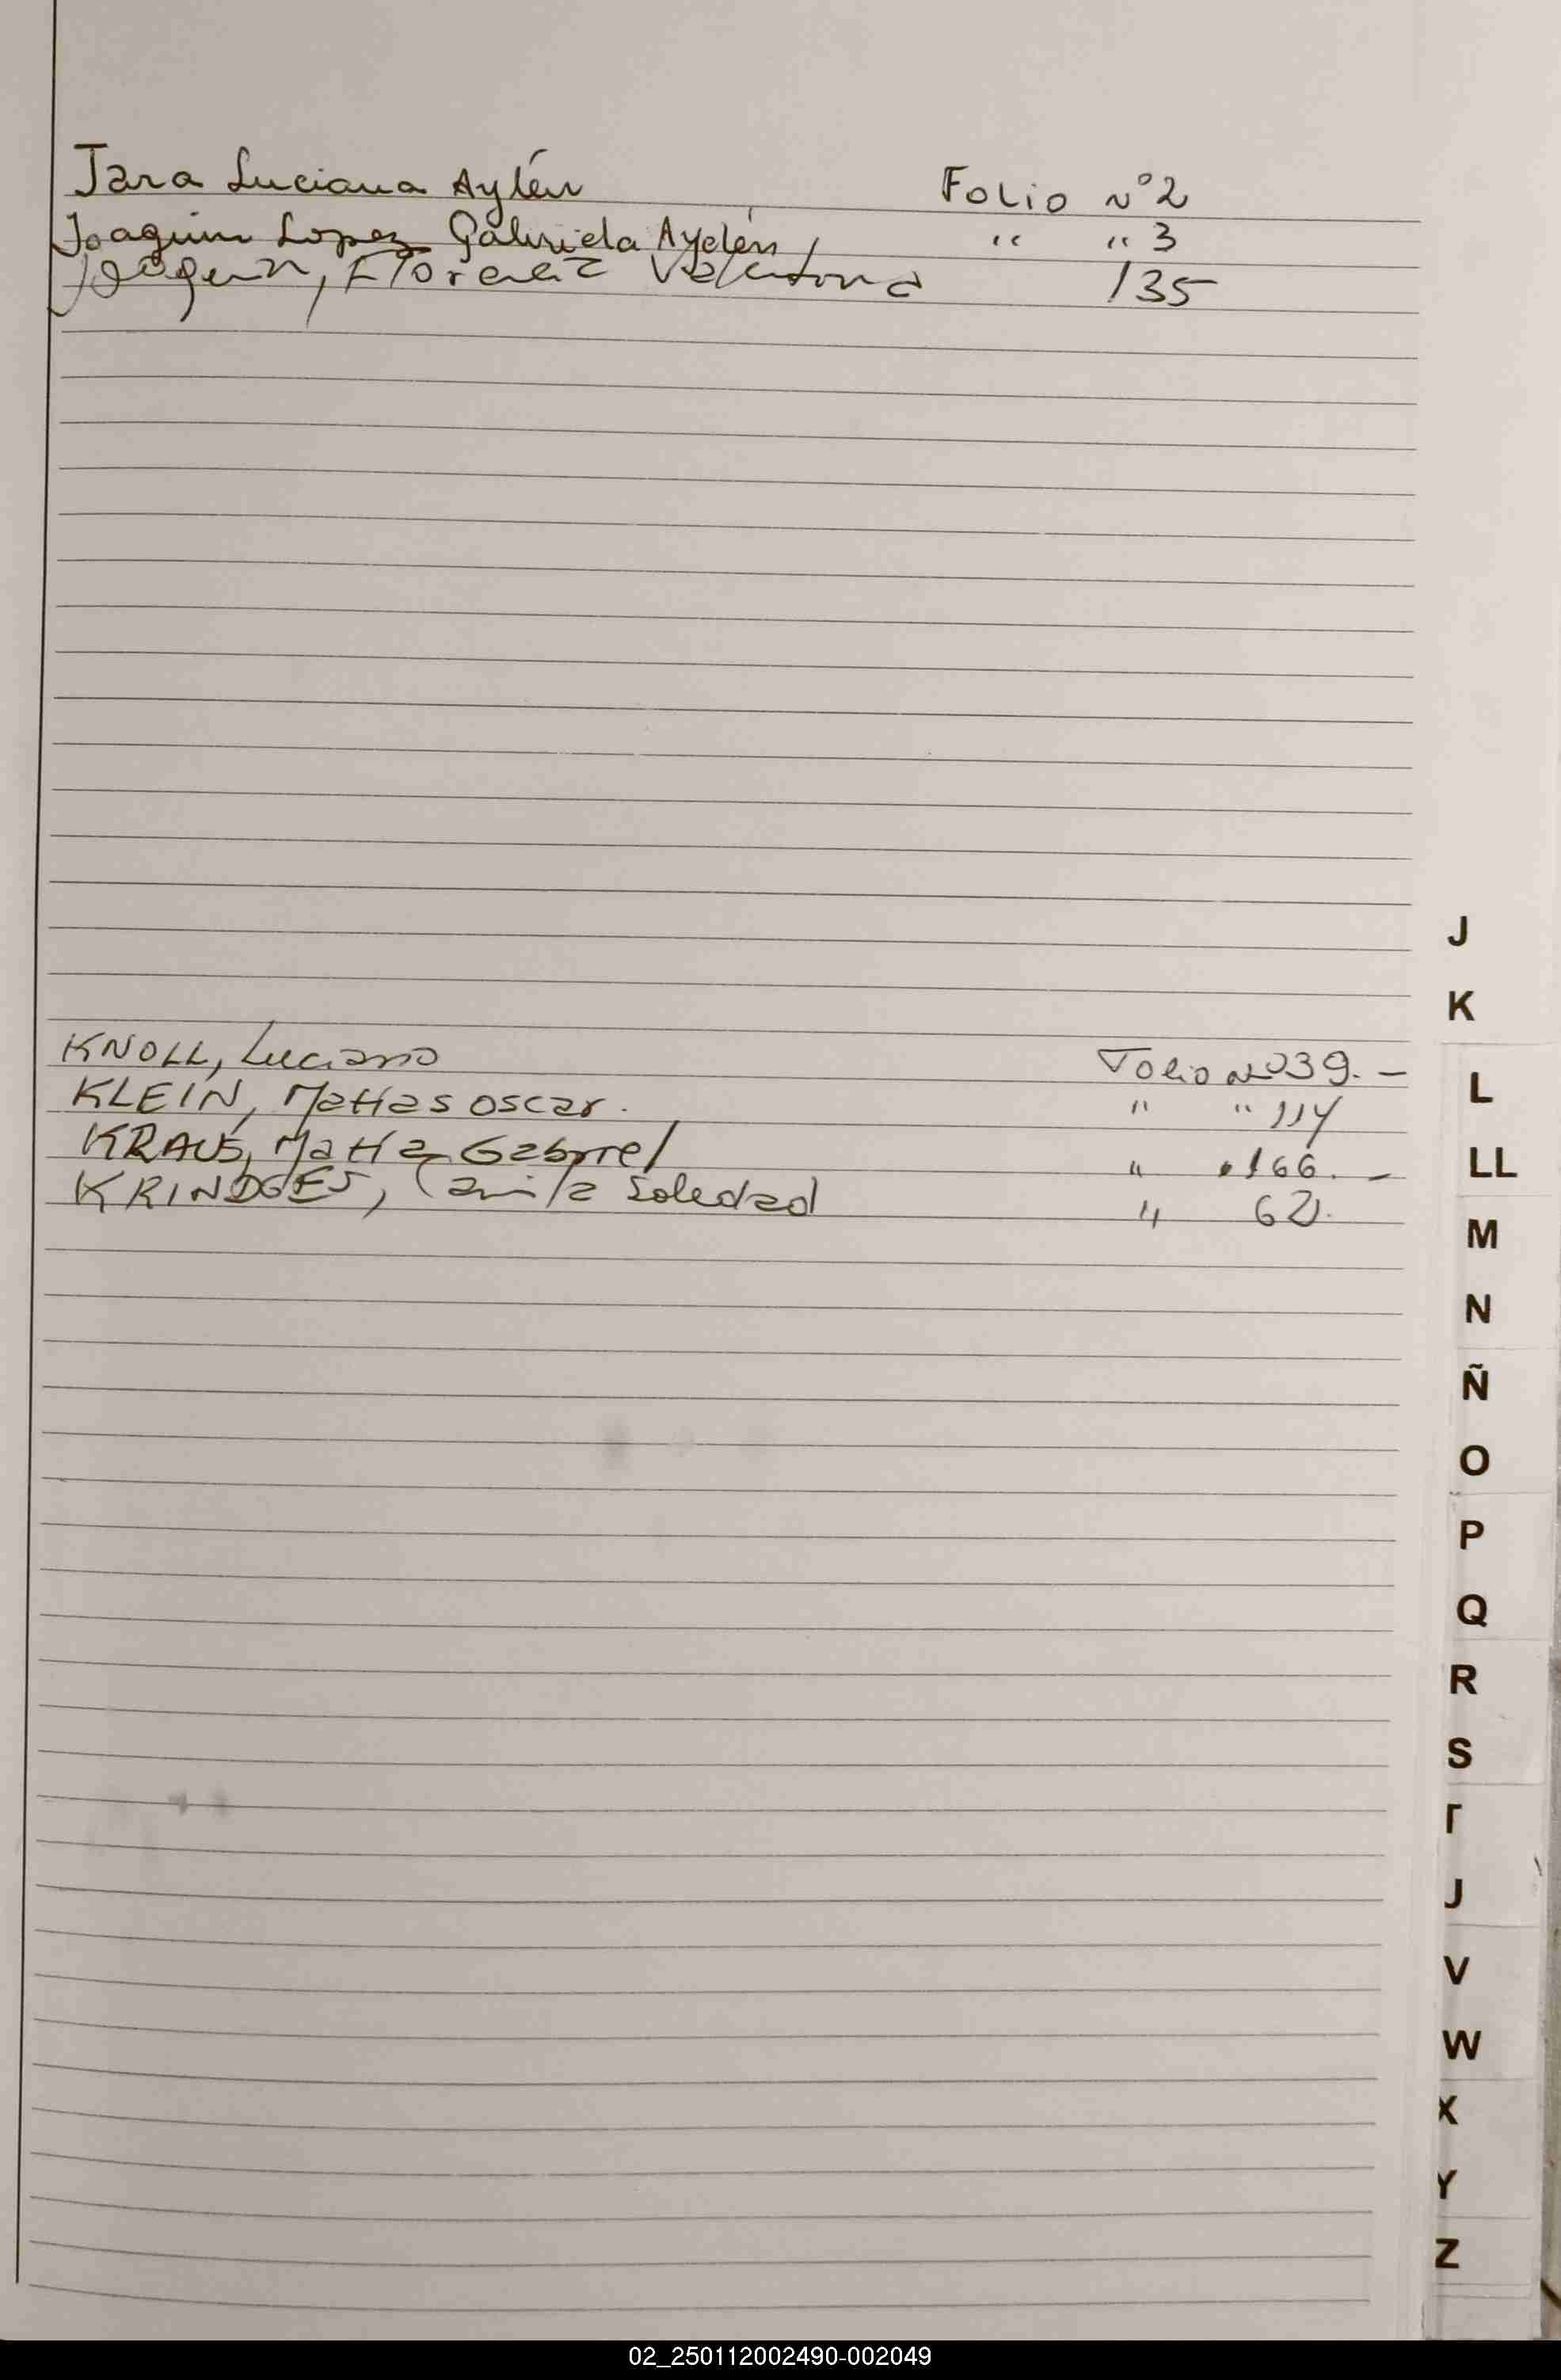 Jara Luciana Aylén Folio N°2
Joaquim Lopez Gabriela Ayelén " " 3
Joaquin, Florencia Valentina 135
KNOLL, Luciano Folio Nº 39.-
KLEIN, Matias Oscar. " " 114
KRAUS, Gabriel " " 166.-
KRINDGES, Camila Soledad " 62.
J
K
L
LL
M
N
Ñ
O
P
Q
R
S
T
U
V
W
X
Y
Z
02_250112002490-002049